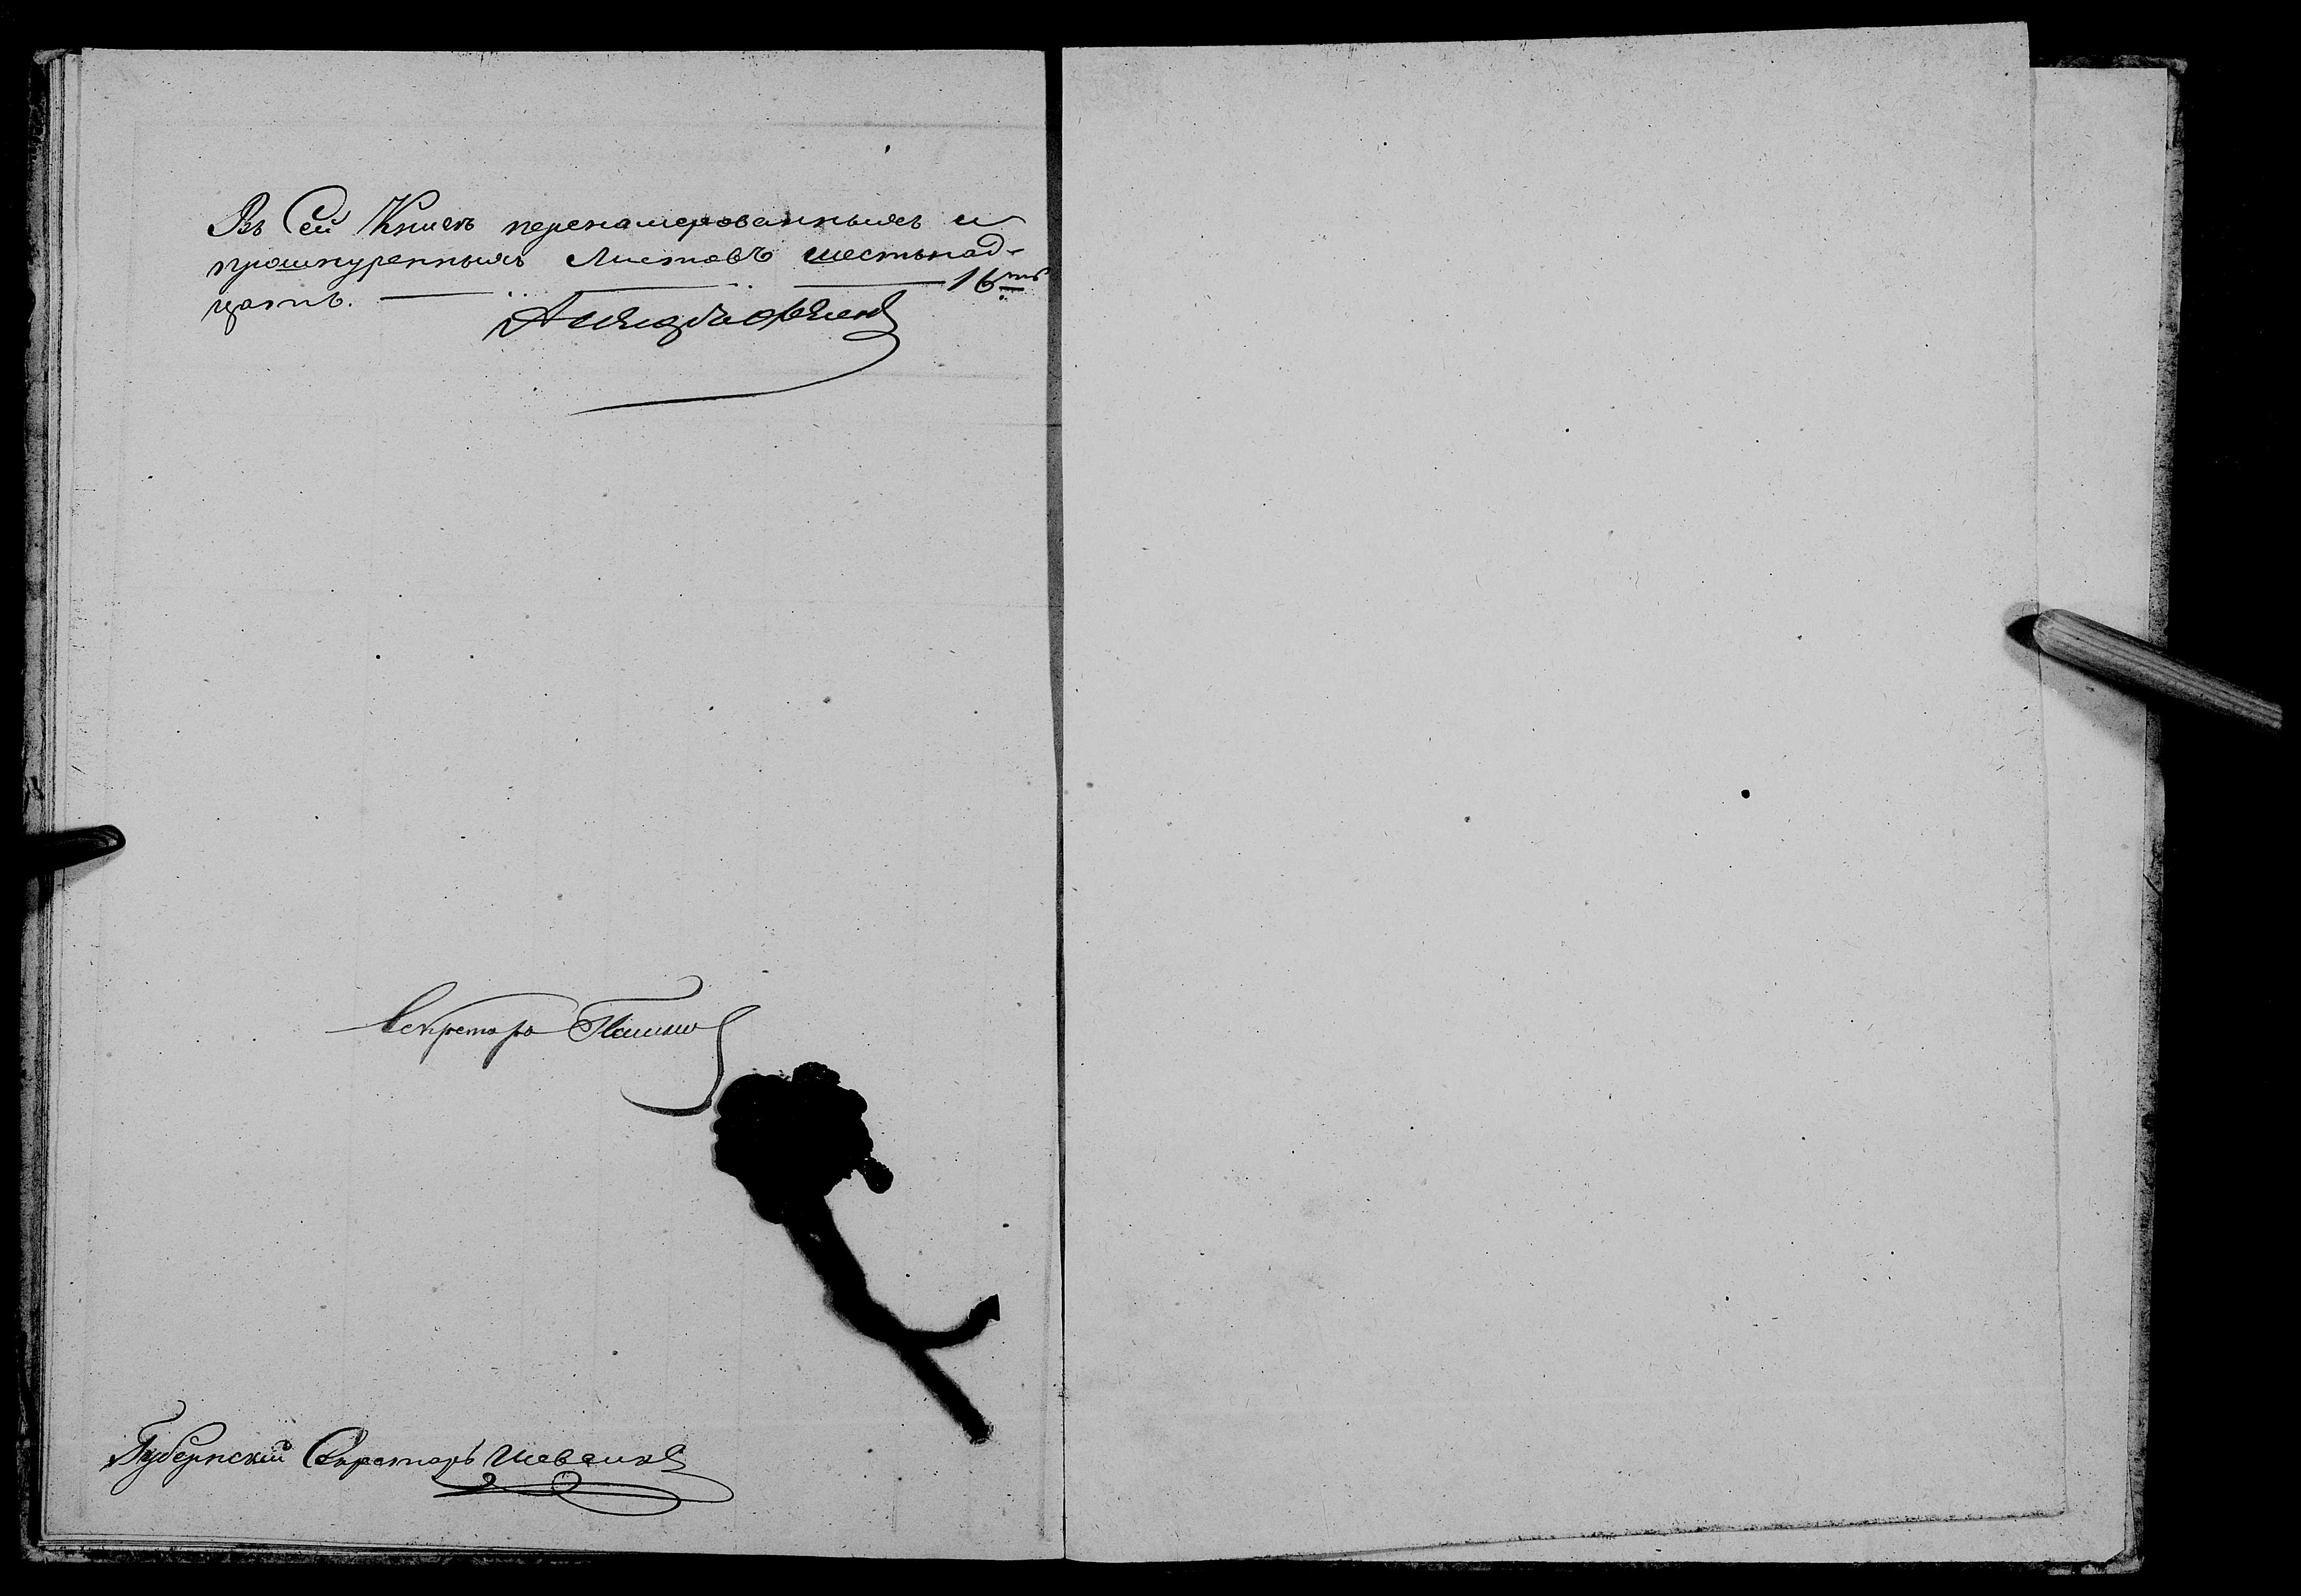 Въ Сей Книгѣ перенамерованныхъ и
прошнуренныхъ Листовъ шестьнад-
цать. 16ть
Секретарь
Губернскій Секретарь